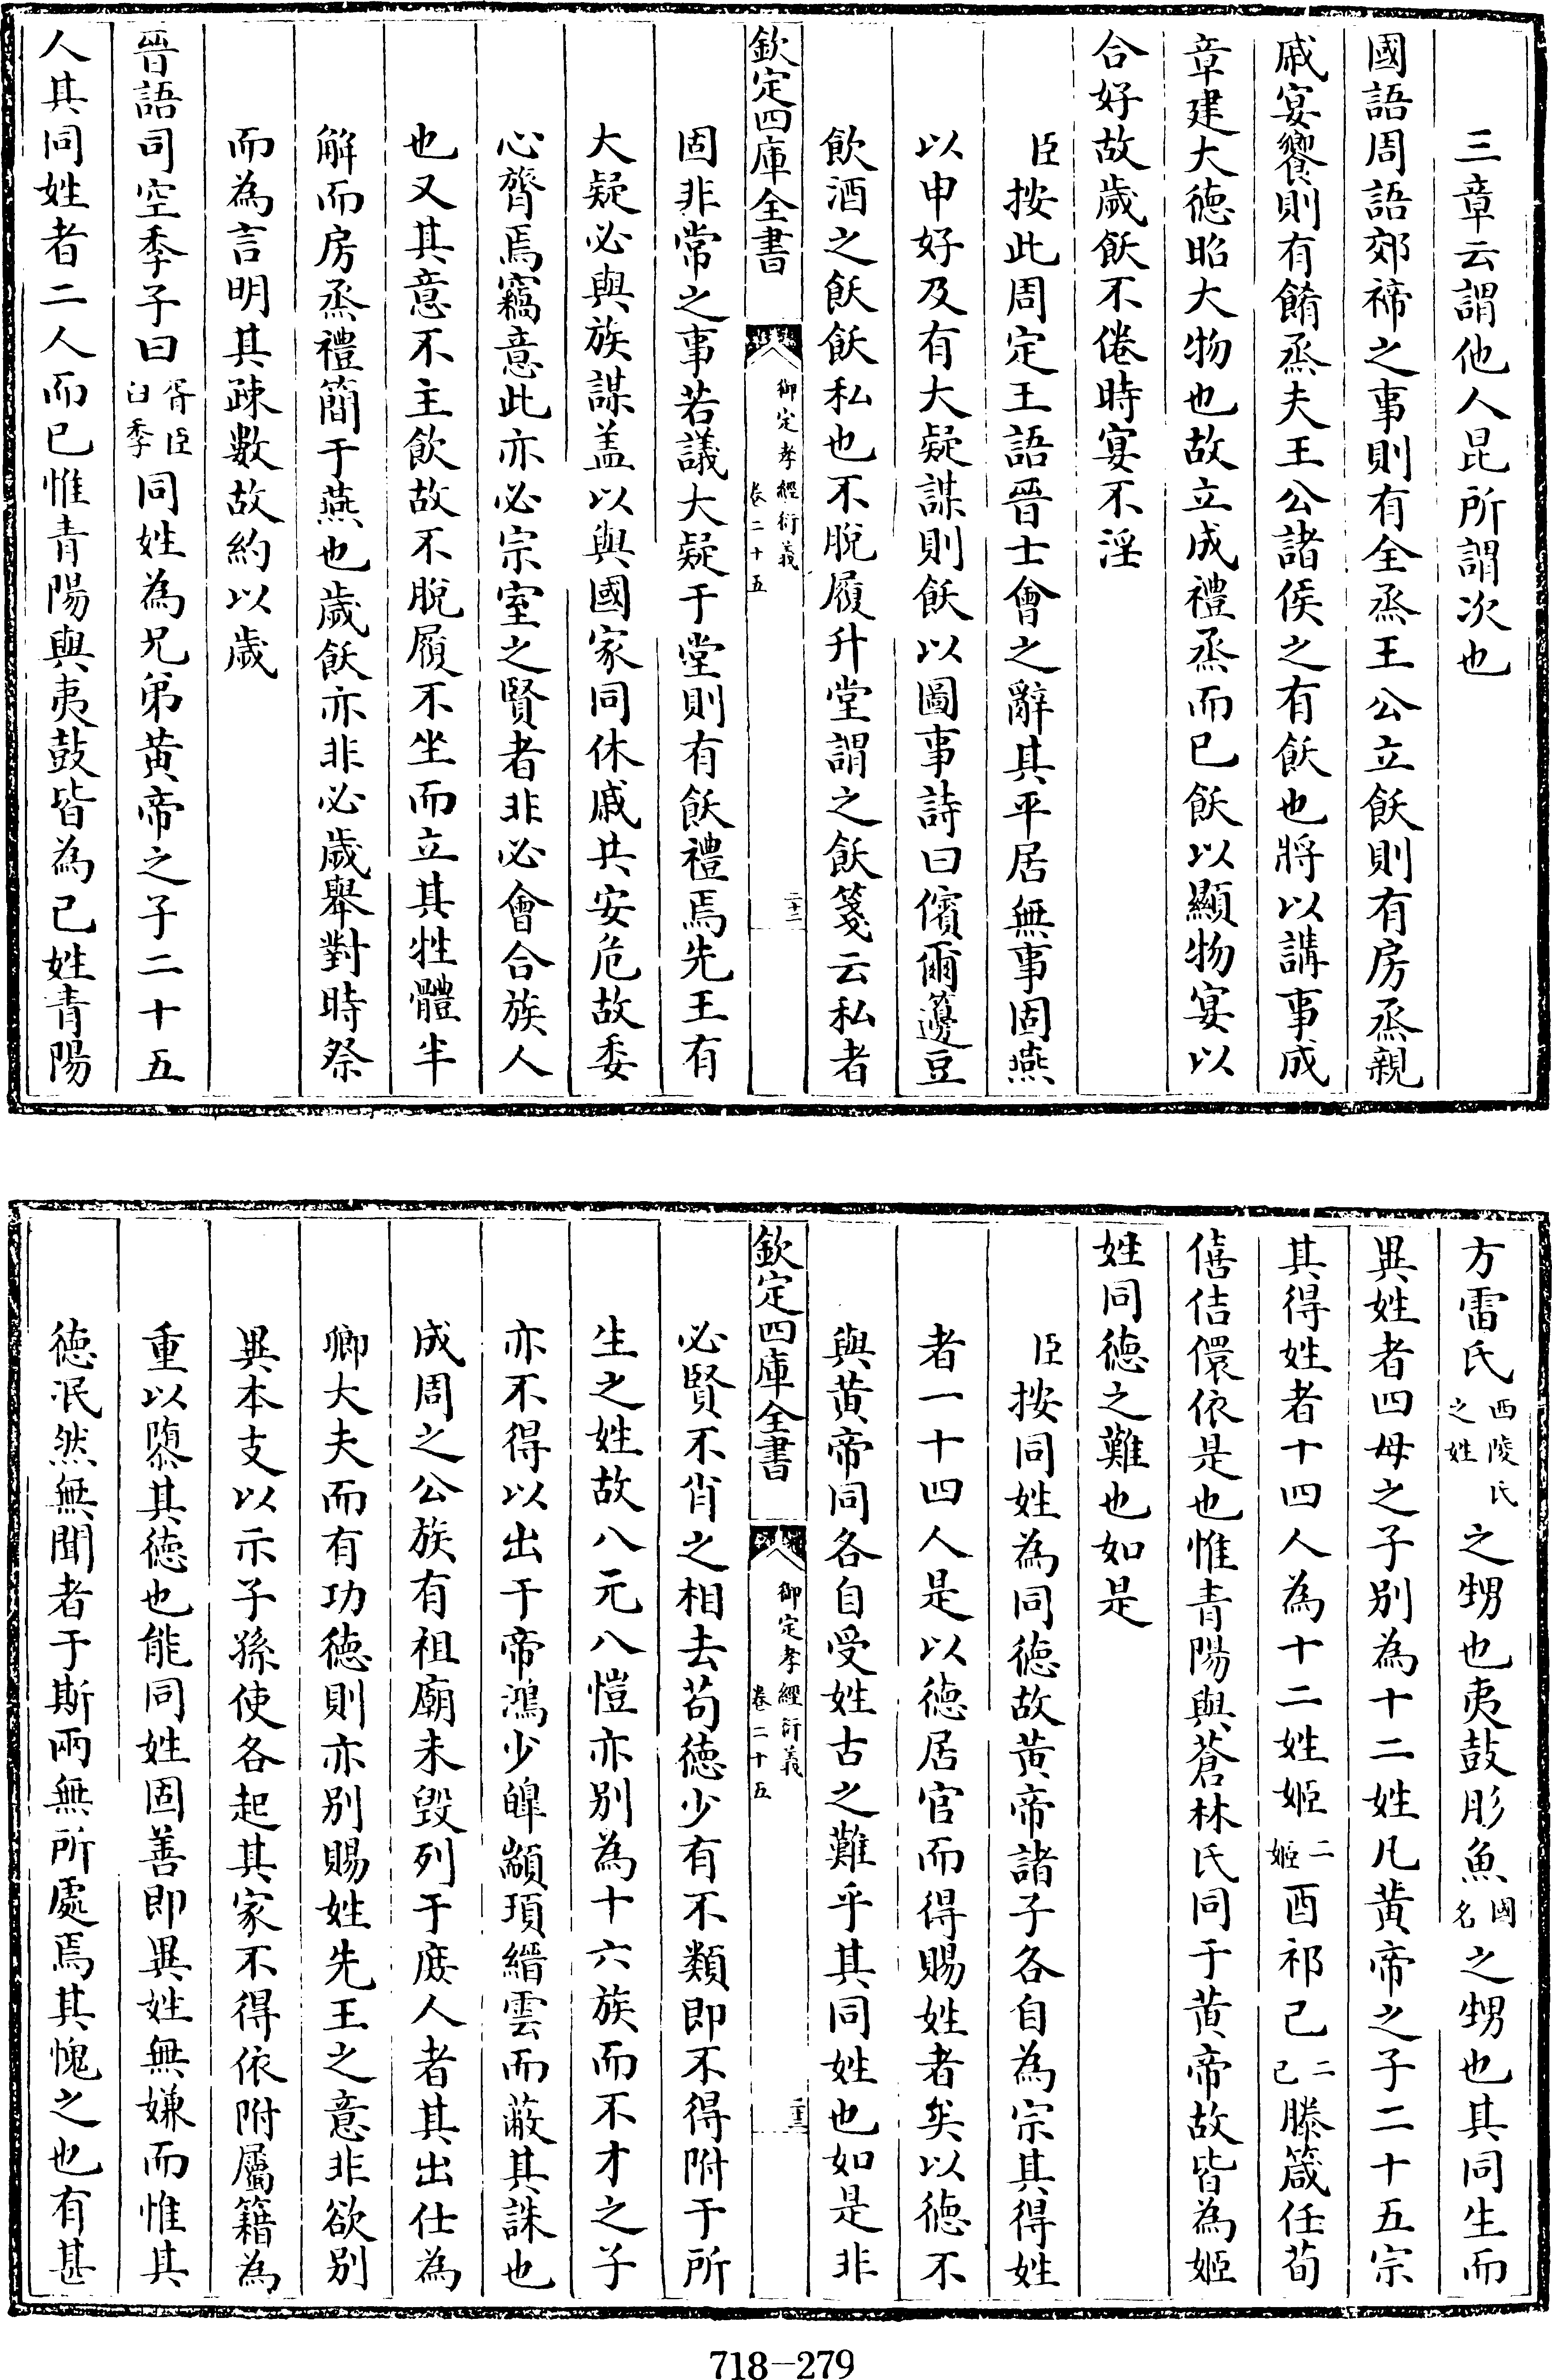 三章云謂他人昆所謂次也
國語周語郊禘之事則有全烝王公立飫則有房烝親
戚宴饗則有餚烝夫王公諸侯之有飫也將以講事成
章建大德昭大物也故立成禮烝而已飫以顯物宴以
合好故歲飫不倦時宴不淫
臣按此周定王語晉士會之辭其平居無事固燕
以申好及有大疑謀則飫以圖事詩曰儐爾籩豆
飲酒之飫飫私也不脫履升堂謂之飫箋云私者
欽定四庫全書
御定孝經衍義
卷二十五
二十二
固非常之事若議大疑于堂則有飫禮焉先王有
大疑必與族謀盖以與國家同休戚共安危故委
心膂焉竊意此亦必宗室之賢者非必會合族人
也又其意不主飲故不脫屨不坐而立其牲體半
解而房烝禮簡于燕也歲飫亦非必歲舉對時祭
而為言明其疎數故約以歲
晉語司空季子曰胥臣臼季同姓為兄弟黃帝之子二十五
人其同姓者二人而已惟青陽與夷鼓皆為己姓青陽
方雷氏西陵氏之姓之甥也夷鼓彤魚國名之甥也其同生而
異姓者四母之子別為十二姓凡黃帝之子二十五宗
其得姓者十四人為十二姓姬二姬酉祁己二己滕箴任荀
僖佶儇依是也惟青陽與蒼林氏同于黃帝故皆為姬
姓同德之難也如是
臣按同姓為同德故黃帝諸子各自為宗其得姓
者一十四人是以德居官而得賜姓者矣以德不
與黃帝同各自受姓古之難乎其同姓也如是非
欽定四庫全書
御定孝經衍義
卷二十五
二十三
必賢不肖之相去苟德少有不類即不得附于所
生之姓故八元八愷亦別為十六族而不才之子
亦不得以出于帝鴻少皥顓頊縉雲而蔽其誅也
成周之公族有祖廟未毀列于庶人者其出仕為
卿大夫而有功德則亦別賜姓先王之意非欲別
異本支以示子孫使各起其家不得依附屬籍為
重以隳其德也能同姓固善即異姓無嫌而惟其
德泯然無聞者于斯兩無所處焉其愧之也有甚
718-279